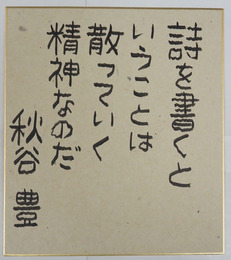 詩を書くと
いうことは
散っていく
精神なのだ
秋谷豊